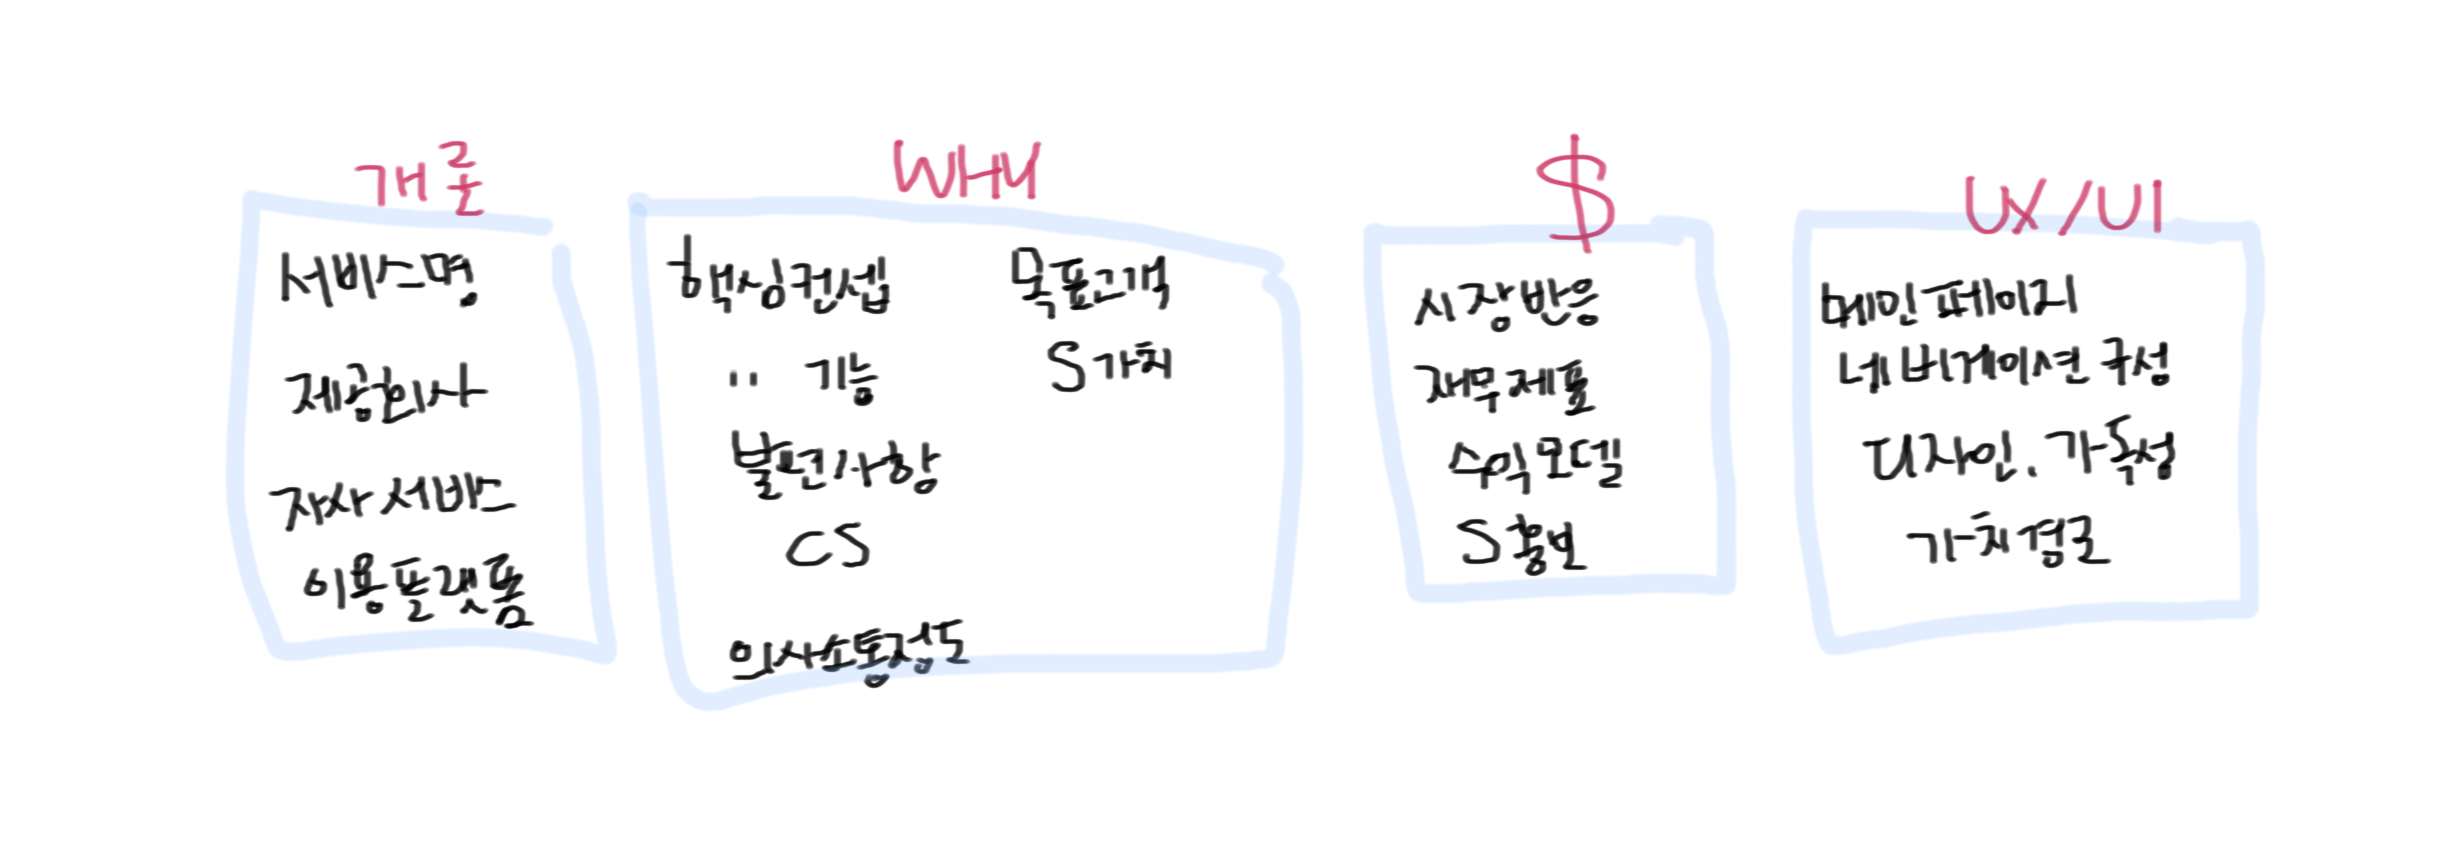 개론
서비스명
제공회사
자사 서비스
이용플랫폼
WHY
핵심컨셉
" 기능
불편사항
CS
의사소통정도
목표고객
S가치
$
시장반응
재무제표
수익모델
S홍보
UX/UI
메인페이지
네비게이션 구성
디자인. 가독성
가치경로